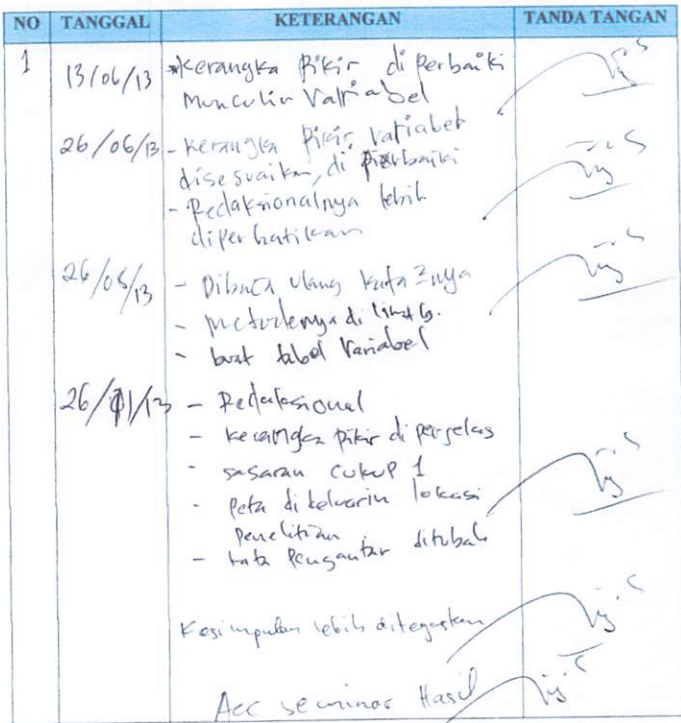 NO TANGGAL KETERANGAN TANDA TANGAN
1 13/06/13 *Kerangka Pikir di Perbaiki
Munculin Variabel
26/06/13 - Kerangka Pikir, Variabel
disesuaikan, di Perbaiki
- Redaksionalnya lebih
diperhatikan
26/08/13 - Dibaca ulang kata2nya
- Metodenya di
- buat tabel Variabel
26/11/13 - Redaksional
- Kerangka Pikir diperjelas
- sasaran cukup 1
- Peta dikeluarin lokasi
Penelitian
- kata Pengantar dirubah
Kesimpulan lebih ditegaskan
Acc seminar Hasil